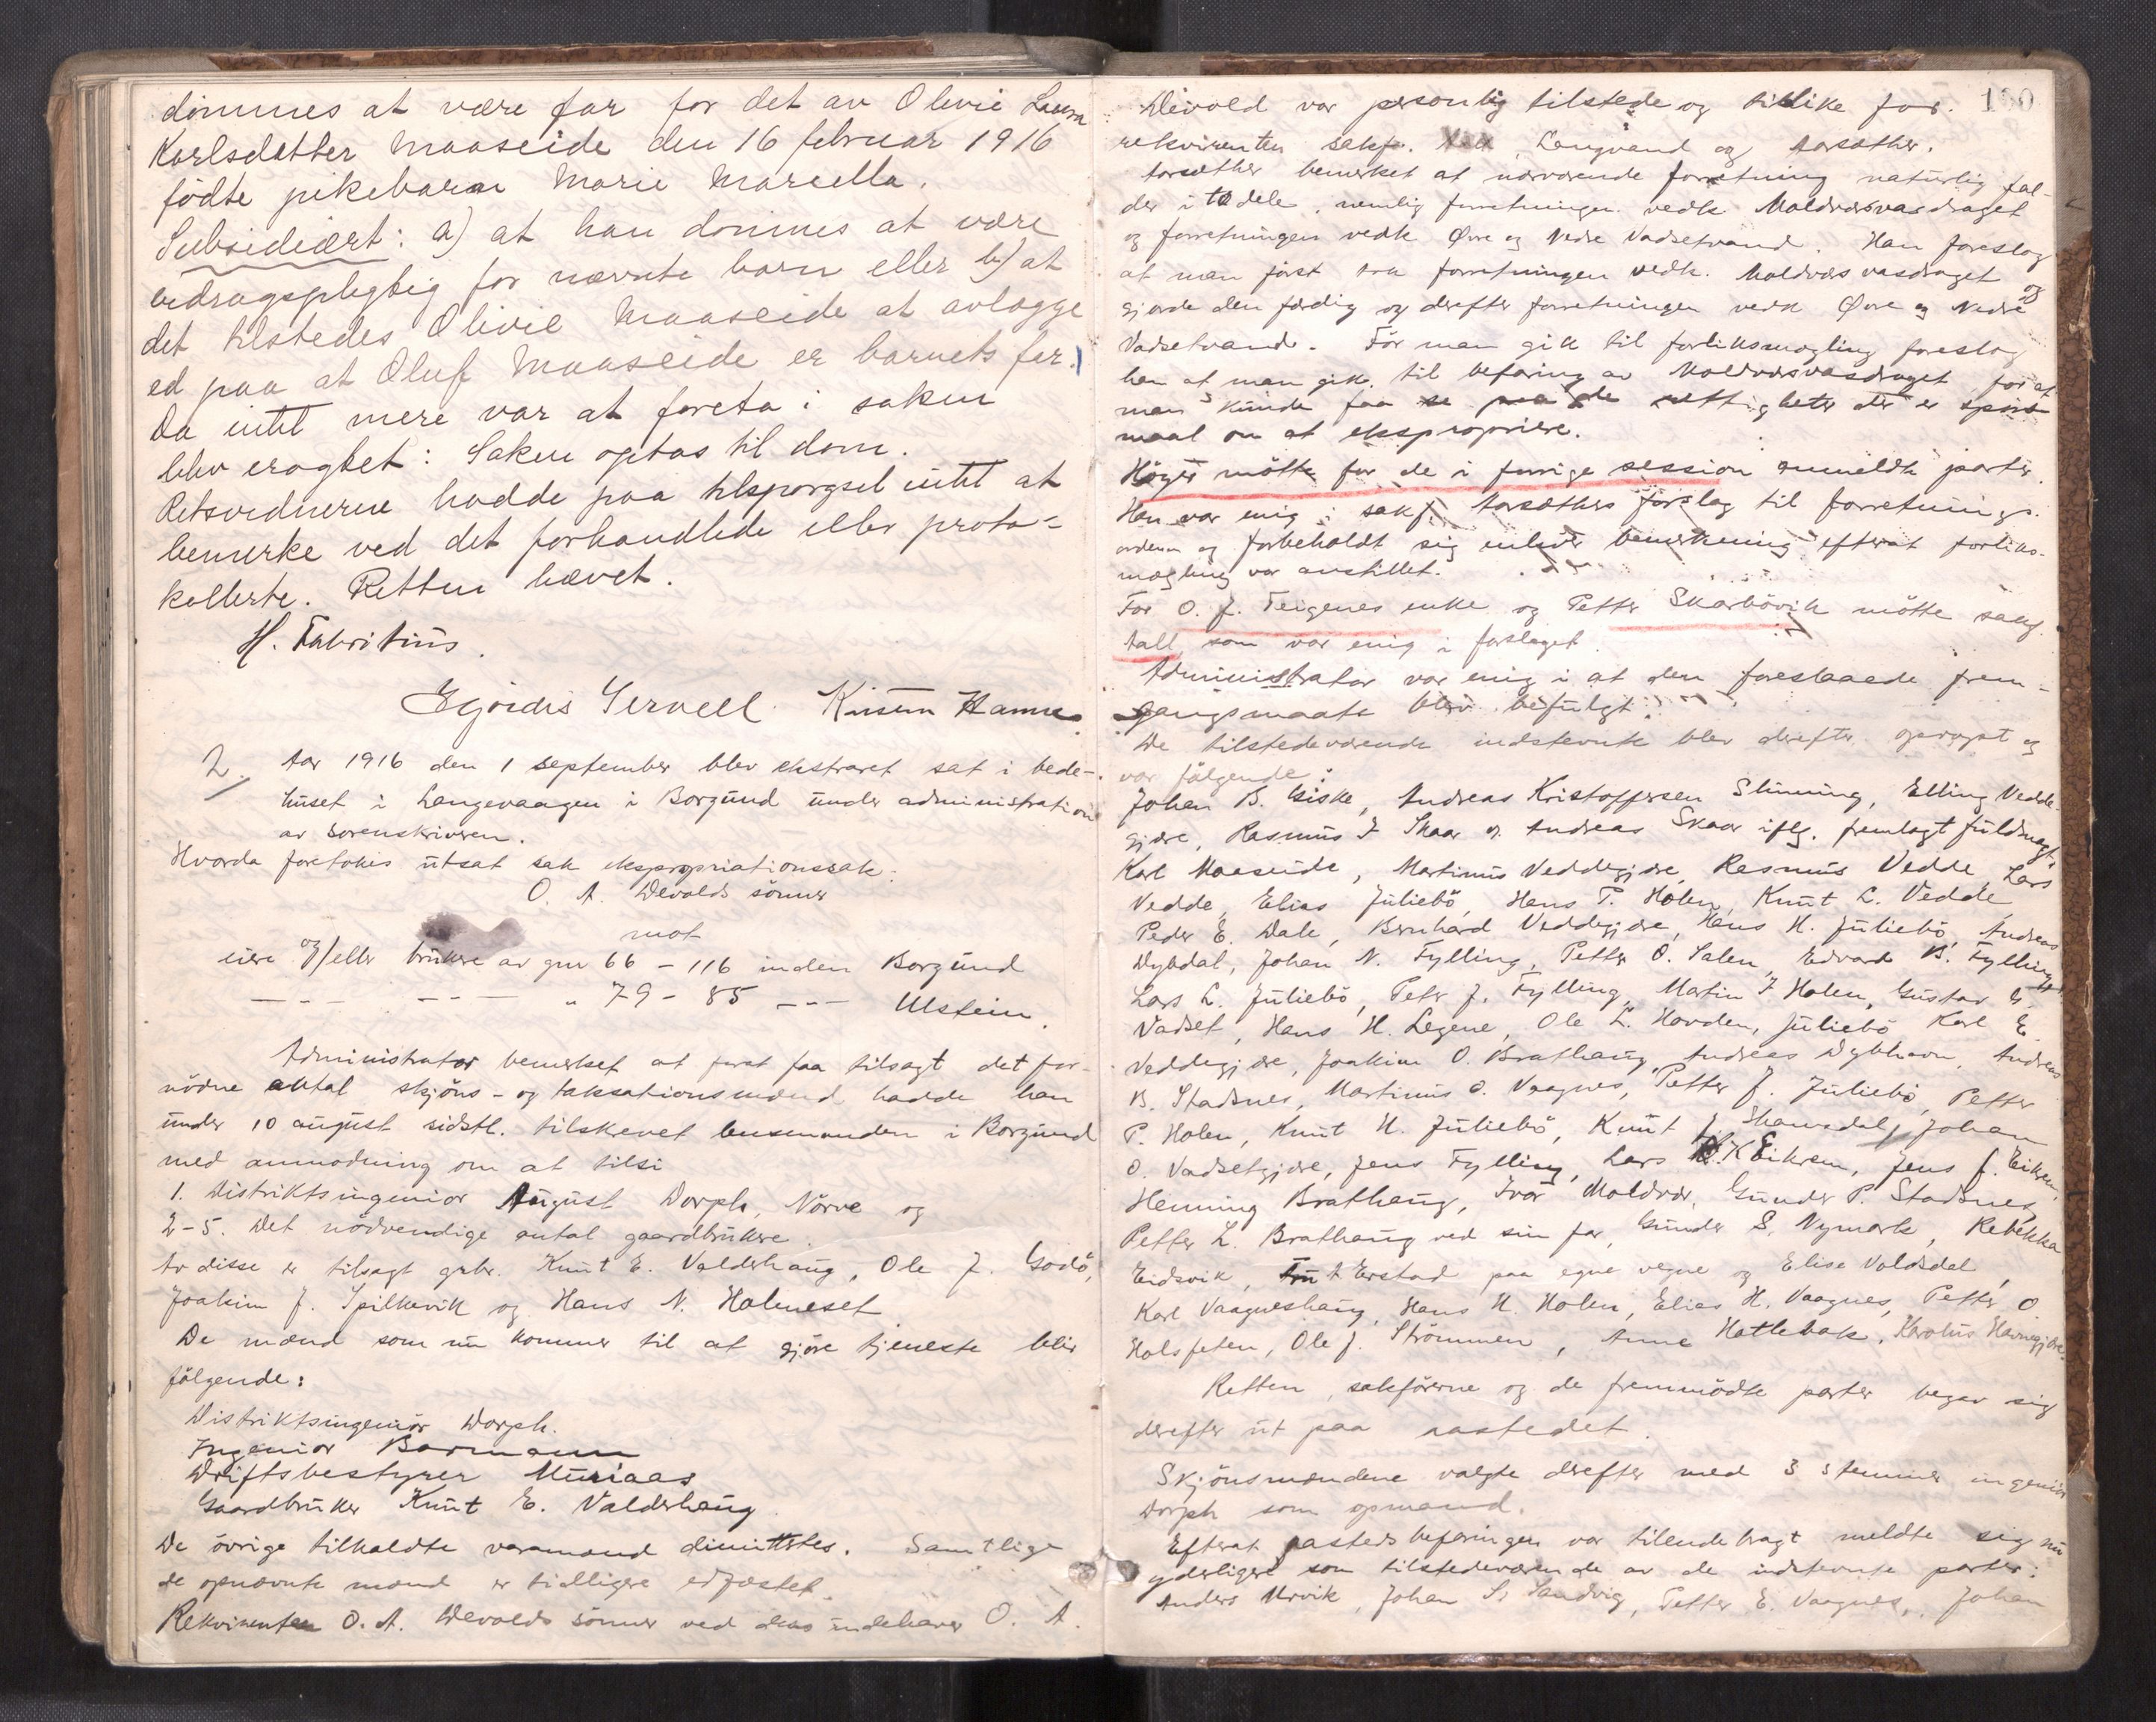 dömmes at være far for det av Olivie Laura
Karlsdatter Maaseide den 16 februar 1916
födte pikebarn Marie Marcella.
Subsidiært: a) at han dömmes at være
bidragspligtig for nævnte barn eller b) at
det tilstedes Olivie Maaseide at avlægge
ed paa at Oluf Maaseide er barnets far.
Da intet mere var at foreta i saken
blev eragtet: Saken optas til dom.
Retsvidnerne hadde paa tilspørgsel intet at
bemerke ved det forhandlede eller proto=
kollerte. Retten hævet.
H. Fabritius.
Servell Hamre
2. Aar 1916 den 1 september blev ekstraret sat i bede-
huset i Langevaagen i Borgund under administration
av sorenskriveren.
Hvorda foretokes utsat sak ekspropriationssak:
O. A. Devolds sönner
mot
eiere og/eller brukere av gnr 66 - 116 inden Borgund
— - - — - - — " 79 - 85 - - — Ulstein.
Administrator bemerket at forat faa tilsagt det for-
nödne antal skjöns- og taksationsmænd hadde han
under 10 august sidstl. tilskrevet lensmanden i Borgund
med anmodning om at tilsi
1. Distriktsingeniør August Dorph, Nörve og
2-5. Det nödvendige antal gaardbrukere.
Av disse er tilsagt grbr. Knut E. Valderhaug, Ole J. Godö,
Joakim J. Spilkevik og Hans N. Holmeset
De mænd som nu kommer til at gjöre tjeneste blir
fölgende:
Distriktsingeniör Dorph.
Ingeniör Barmann
Driftsbestyrer Muriaas
Gaardbruker Knut E. Valderhaug
De övrige tilkaldte varamænd dimittertes. Samtlige
de opnævnte mænd er tidligere edfæstet.
Rekvirenten O. A. Devolds sönner ved dens indehaver O. A.
100
Devold var personlig tilstede og tillike for
rekvirenten sakf. Lengvand og Aarsæther.
Aarsæther bemerket at nærværende forretning naturlig fal-
der i to dele, nemlig forretningen vedk Moldværsvasdraget
og forretningen vedk Övre og Nedre Vadsetvand. Han foreslog
at man först tok forretningen vedk. Moldværsvasdraget og
gjorde den færdig og derefter forretningen vedk Övre og Nedre
Vadsetvand. Før man gik til forliksmægling foreslog
han at man gik til befaring av Moldværsvasdraget for at
man kunde faa se paa de rettigheter der er spörs-
maal om at ekspropriere.
Höyer mötte for de i forrige session anmeldte parter.
Han var enig i sakf. Aarsæthers forslag til forretnings-
ordenen og forbeholdt sig enhver bemerkning efterat forliks-
mægling var anstillet.
For O. J. Teigenes enke og Petter Skarbövik mötte sakf.
Aall som var enig i forslaget.
Administrator var enig i at den foreslaaede frem-
gangsmaate blev befulgt.
De tilstedeværende indstevnte blev derefter opropt og
var fölgende:
Johan B. Giske, Andreas Kristoffersen Slinning, Elling Vedde-
gjære, Rasmus I Skaar og Andreas Skaar iflg. fremlagt fuldmagt,
Karl Maaseide, Martinus Veddegjære, Rasmus Vedde, Lars
Vedde, Elias Juliebö, Hans P. Holen, Knut L. Vedde
Peder E. Dale, Bernhard Veddegjære, Hans H. Juliebö, Andreas
Dybdal, Johan N. Fylling, Petter O. Salen, Edvard B. Fylling,
Lars L. Juliebö, Peter J. Fylling, Martin I Holen, Gustav E.
Vadset, Hans H. Legene, Ole L. Hovden, Juliebö Karl E.
Veddegjære, Joakim O. Brathaug, Andreas Dybhavn, Andreas
B. Stadsnes, Martinus O. Vaagnes, Petter J. Juliebö, Petter
P. Holen, Knut H. Juliebö, Knut J. Johan
O. Vadsetgjære, Jens Fylling, Lars K Eikrem, Jens J. Eikrem,
Henning Brathaug, Ivar Moldvær, Gunder P. Stadsnes,
Petter L. Brathaug ved sin far, Gunder S. Nymark, Rebekka
Eidsvik, Erstad paa egne vegne og Elise Voldsdal,
Karl Vaagneshaug, Hans H. Holen, Elias H. Vaagnes, Petter O
Holsfeten, Ole J. Strömmen, Anne Hatlebak, Karolus Havnegjære.
Retten, sakförerne og de fremmödte parter begav sig
derefter ut paa aastedet.
Skjönsmændene valgte derefter med 3 stemmer ingeniör
Dorph som opmand.
Efterat aastedsbefaringen var tilendebragt meldte sig nu
yderligere som tilstedeværende av de indstevnte parter:
Anders Urvik, Johan S. Sandvig, Petter E. Vaagnes, Johan